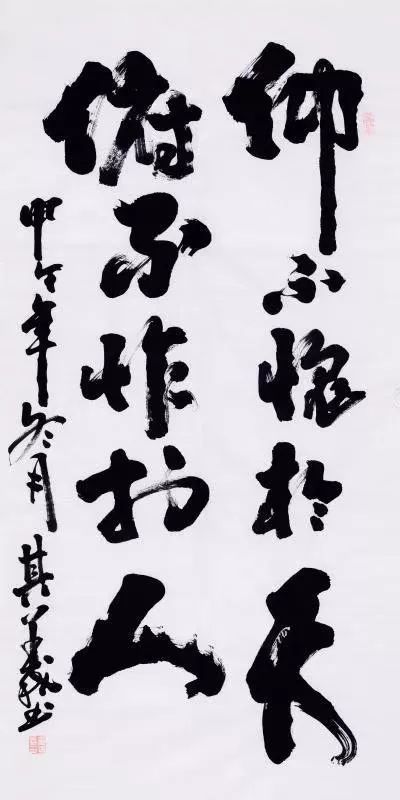 仰不愧於天
俯不怍於人
甲午年冬月